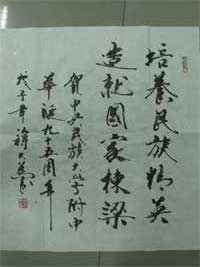 培養民族精英
造就國家棟梁
賀中央民族大学附中
華誕九十五周年
戊子年